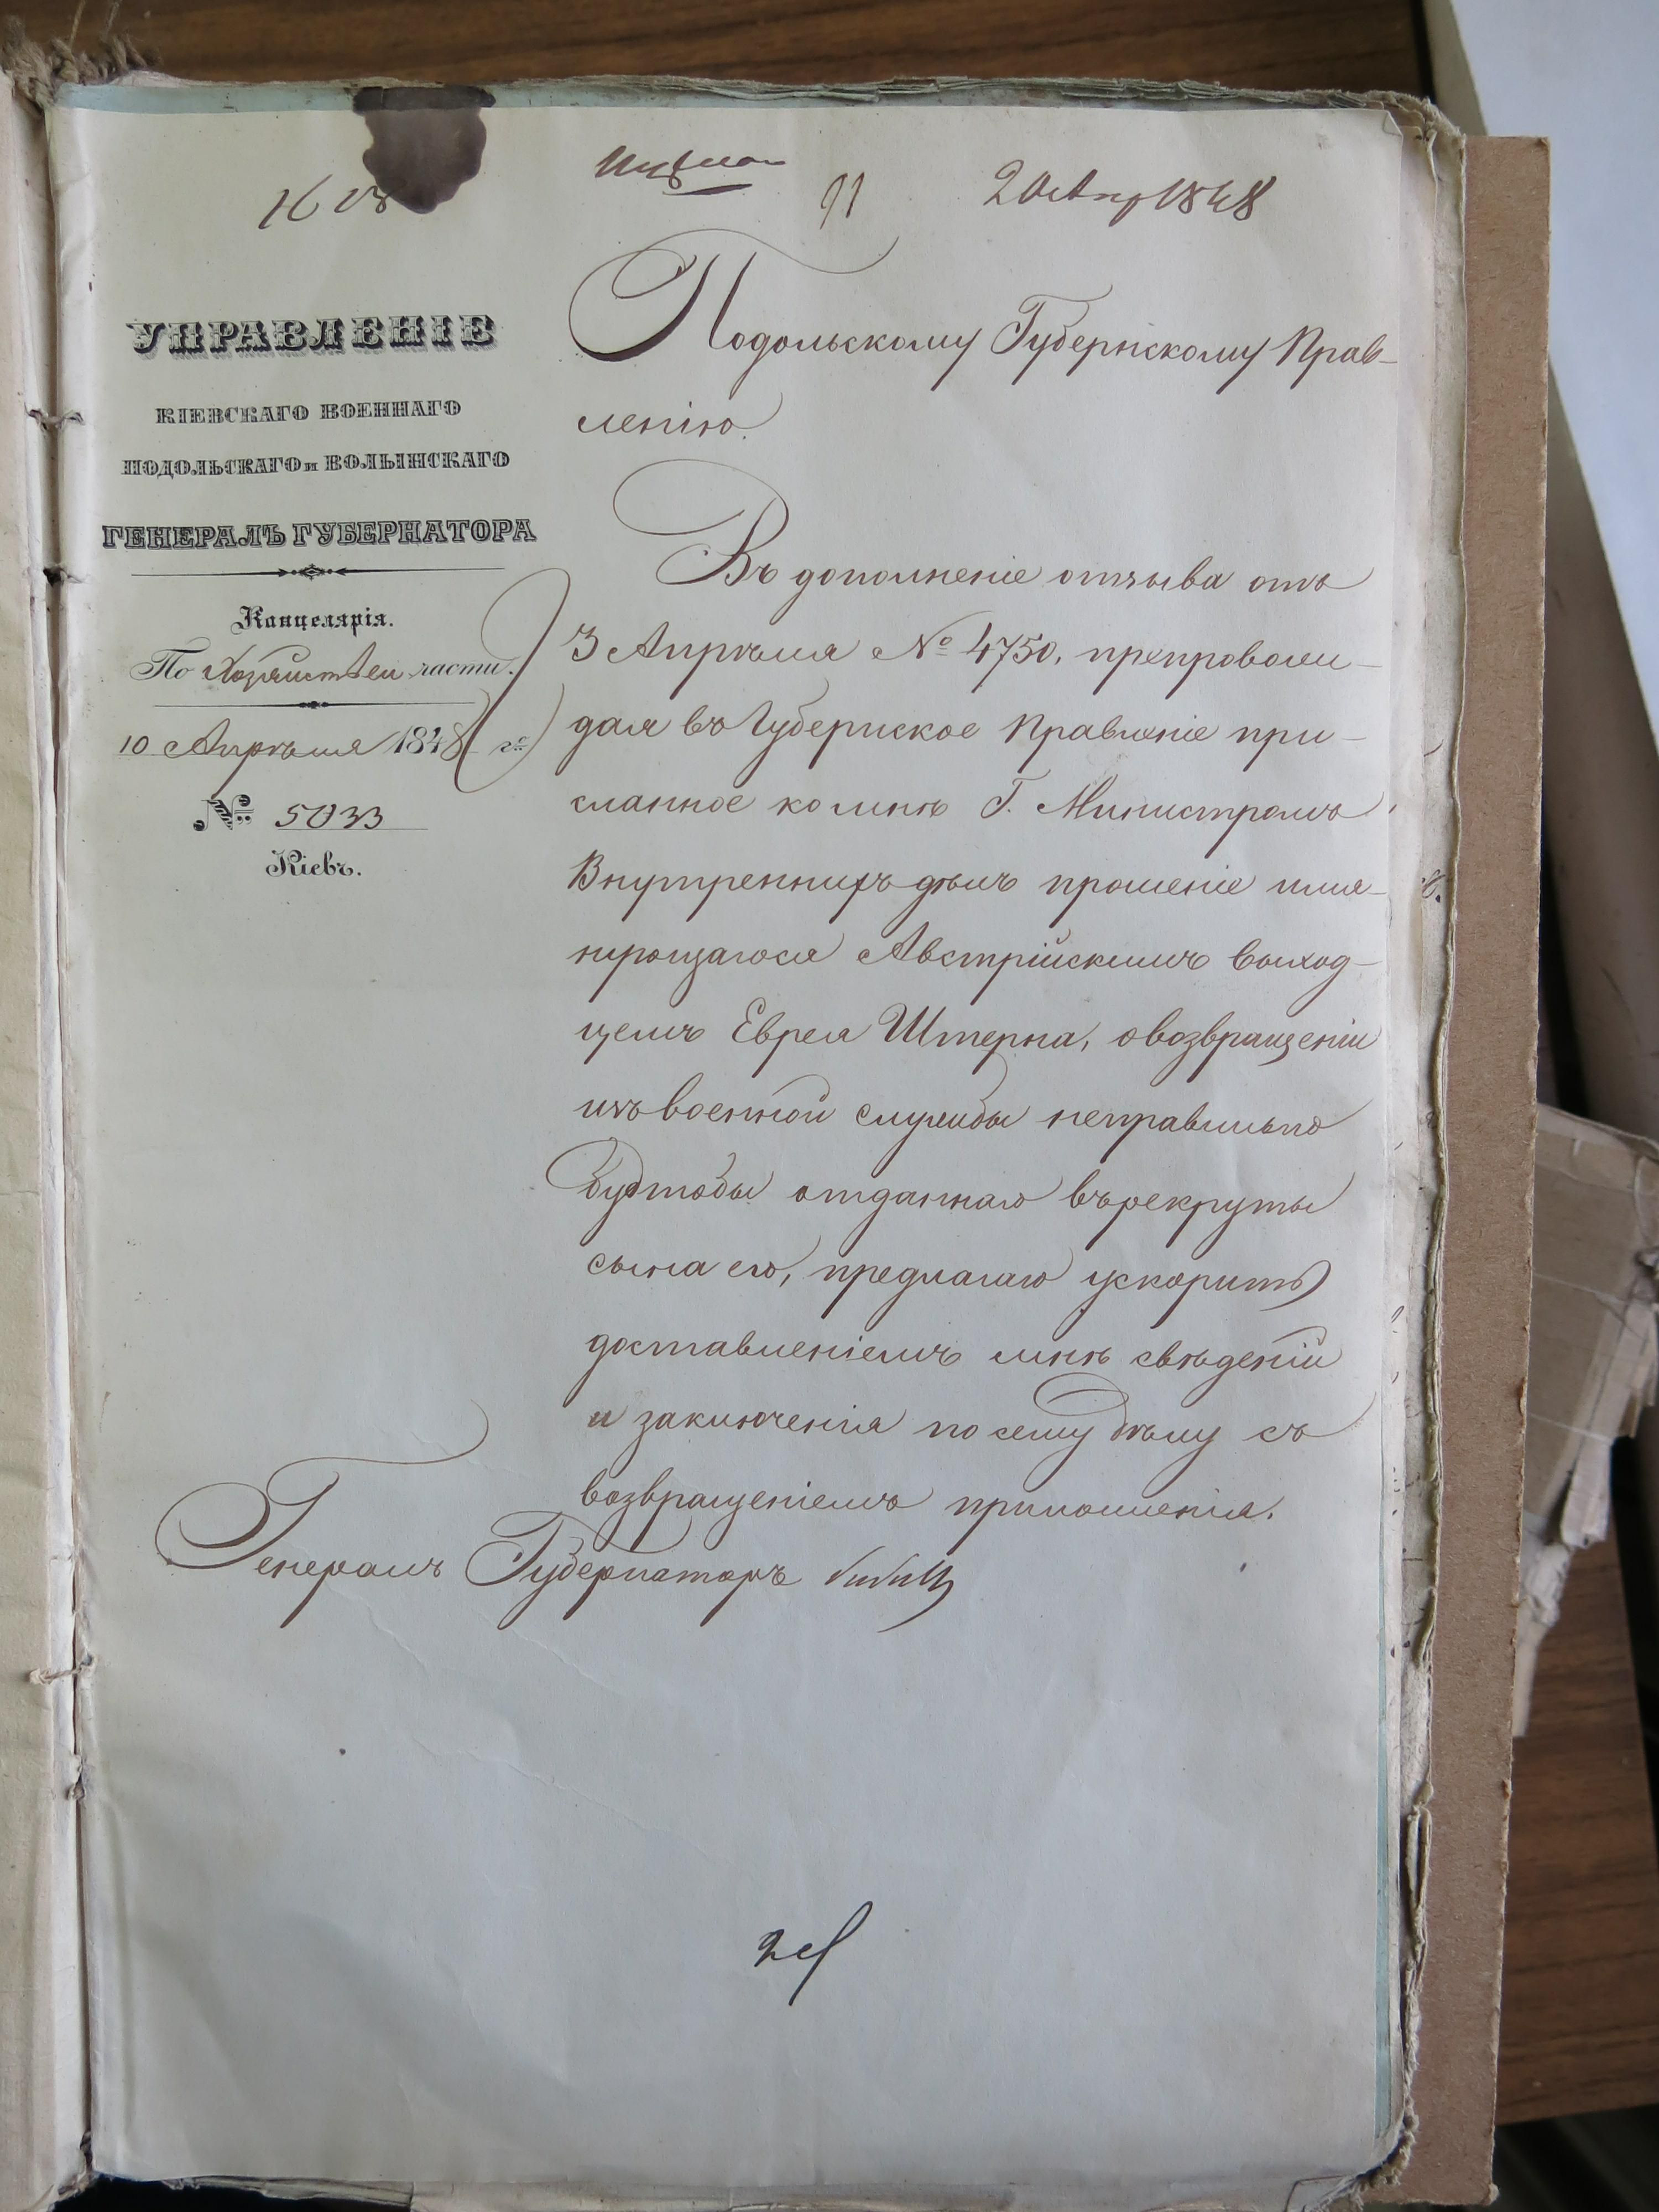 91
20 Апр 1848
УПРАВЛЕНІЕ
КІЕВСКАГО ВОЕННАГО
ПОДОЛЬСКАГО и ВОЛЫНСКАГО
ГЕНЕРАЛЪ ГУБЕРНАТОРА
Канцелярія.
По Хозяйствен части.
10 Апрѣля 1848 го
№ 5033
Кіевъ.
Подольскому Губернскому Прав-
ленію.
Въ дополненіе отзыва отъ
3 Апрѣля № 4750, препровож-
дая въ Губернское Правленіе при-
сланное ко мнѣ Г. Министромъ
Внутреннихъ дѣлъ прошеніе име-
нующагося Австрійскимъ выход-
цемъ Еврея Штерна, о возвращеніи
изъ военной службы неправильно
будтобы отданнаго въ рекруты
сына его, предлагаю ускорить
доставленіемъ мнѣ свѣденій
и заключенія по сему дѣлу съ
возвращеніемъ приложенія.
Генералъ Губернаторъ Бибик